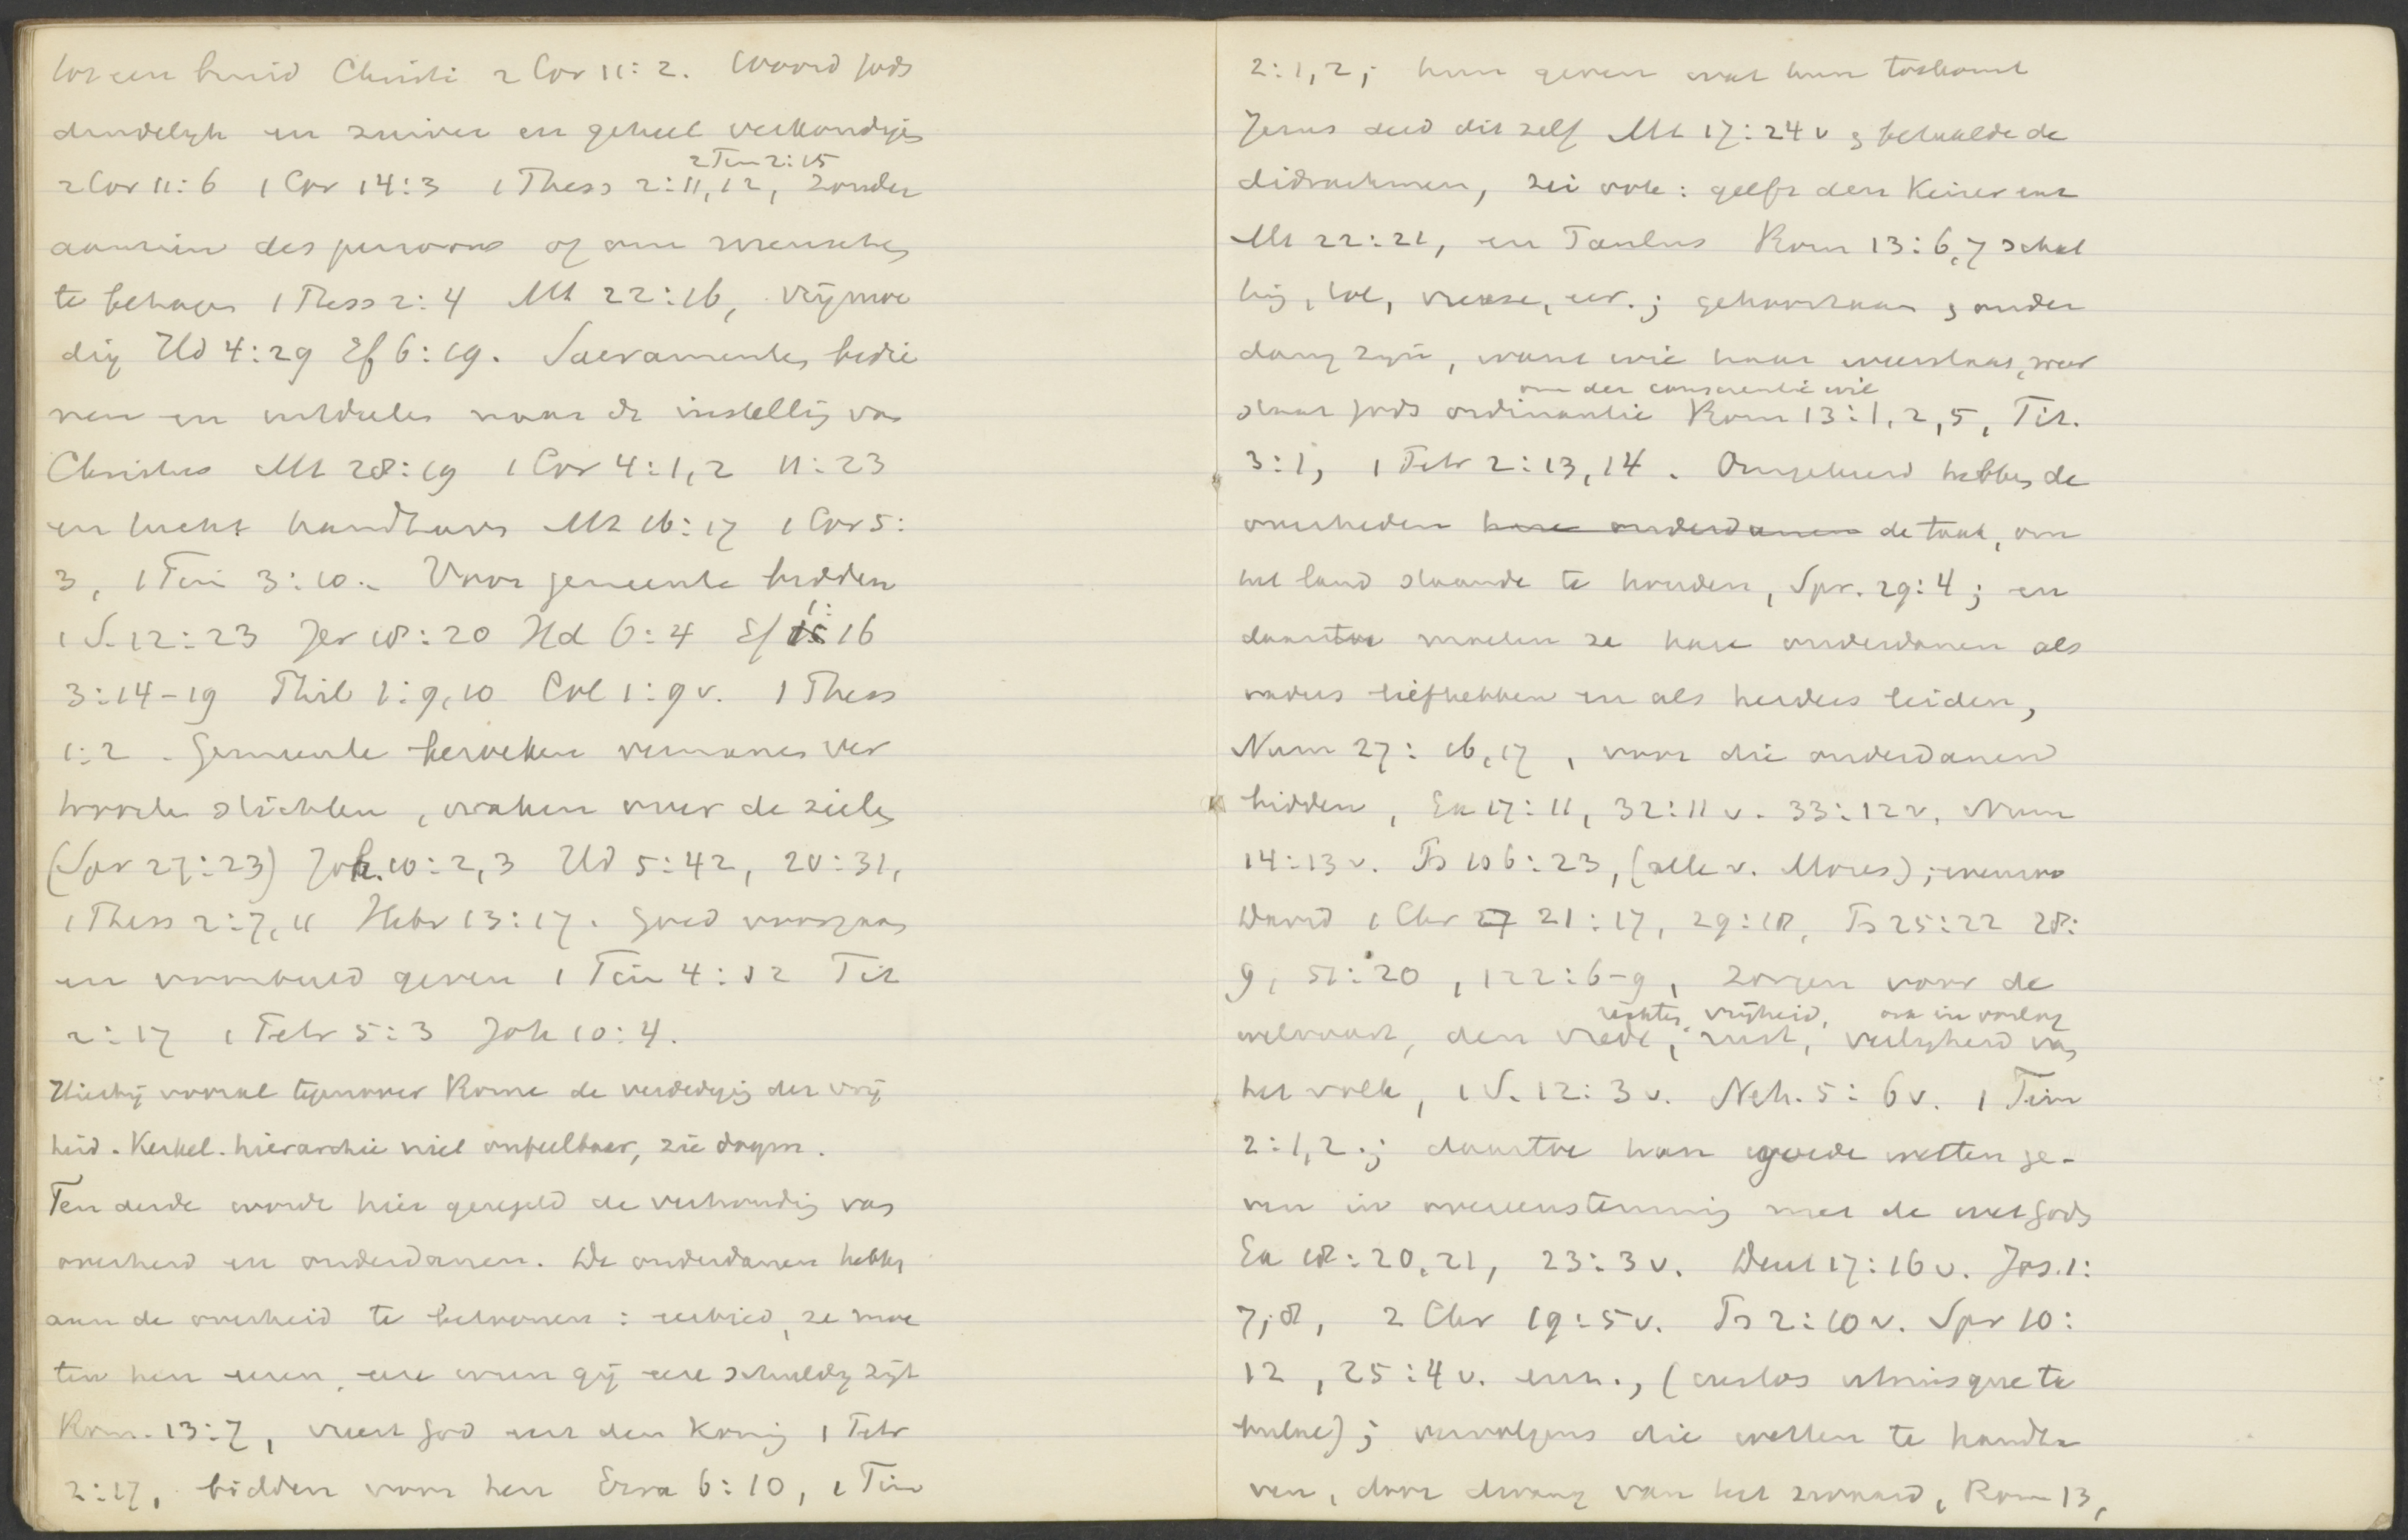 tot een bruid Christi 2 Cor 11:2. Woord Gods
duidelijk en zuiver en geheel verkondigen
2 Tim 2:15
2 Cor 11:6 1 Cor 14:3 1 Thess 2:11,12, zonder
aanzien des persoons of om menschen
te behagen 1 Thess 2:4 Mt 22:16, vrijmoe
dig Hd 4:29 Ef 6:19. Sacramenten bedie
nen en uitdeelen naar de instelling van
Christus Mt 28:19 1 Cor 4:1,2 11:23
en tucht handhaven Mt 16:17 1 Cor 5:
3, 1 Tim 3:10. Voor gemeente bidden
1 S. 12:23 Jer 18:20 Hd 6:4 Ef 1:16
3:14-19 Phil 1:9,10 Col 1:9v. 1 Thess
1:2. Gemeente bezoeken vermanen ver
troosten stichten, waken over de zielen
(Spr 27:23) Joh. 10:2,3 Hd 5:42, 20:31,
1 Thess 2:7,11 Hebr 13:17. Goed voorgaan
en voorbeeld geven 1 Tim 4:12 Tit
2:17 1 Petr 5:3 Joh 10:4.
Hierbij vooral tegenover Rome de verdediging der vrij
heid. Kerkel. hierarchie niet onfeilbaar, zie dogm.
Ten derde wordt hier geregeld de verhouding van
overheid en onderdanen. De onderdanen hebben
aan de overheid te betoonen: eerbied, ze moe
ten hen eeren, eere wien gij eere schuldig zijt
Rom. 13:7, vreest God eert den Koning 1 Petr
2:17, bidden voor hen Ezra 6:10, 1 Tim
2:1,2; hun geven wat hun toekomt
Jezus deed dit zelf Mt 17:24v & betaalde de
didrachmen, zei ook: geeft den Keizer enz
Mt 22:21, en Paulus Rom 13:6,7 schat
ting, tol, vreeze, eer.; gehoorzaam & onder
danig zijn, want wie haar weerstaat, weer
om der conscientie wil
staat Gods ordinantie Rom 13:1,2,5, Tit.
3:1, 1 Petr 2:13,14. Omgekeerd hebben de
overheden hare onderdanen de taak, om
het land staande te houden, Spr. 29:4; en
daartoe moeten ze hare onderdanen als
vaders liefhebben en als herders leiden,
Num 27:16,17, voor die onderdanen
bidden, Ex 17:11, 32:11v. 33:12v, Num
14:13v. Ps 106:23, (alle v. Mozes); evenzoo
David 1 Chr 27 21:17, 29:18, Ps 25:22 28:
9, 51:20, 122:6-9, zorgen voor de
rechten, vrijheid, ook in oorlog
welvaart, den vrede, rust, veiligheid van
het volk, 1 S. 12:3v. Neh. 5:6v. 1 Tim
2:1,2.; daartoe hun goede wetten ge-
ven in overeenstemming met de wet Gods
Ex 18:20,21, 23:3v. Deut 17:16v. Joz. 1:
7,8, 2 Chr 19:5v. Ps 2:10v. Spr 10:
12, 25:4v. enz., (custos utriusque ta
bulae); vervolgens die wetten te handha
ven, door dwang van het zwaard, Rom 13,